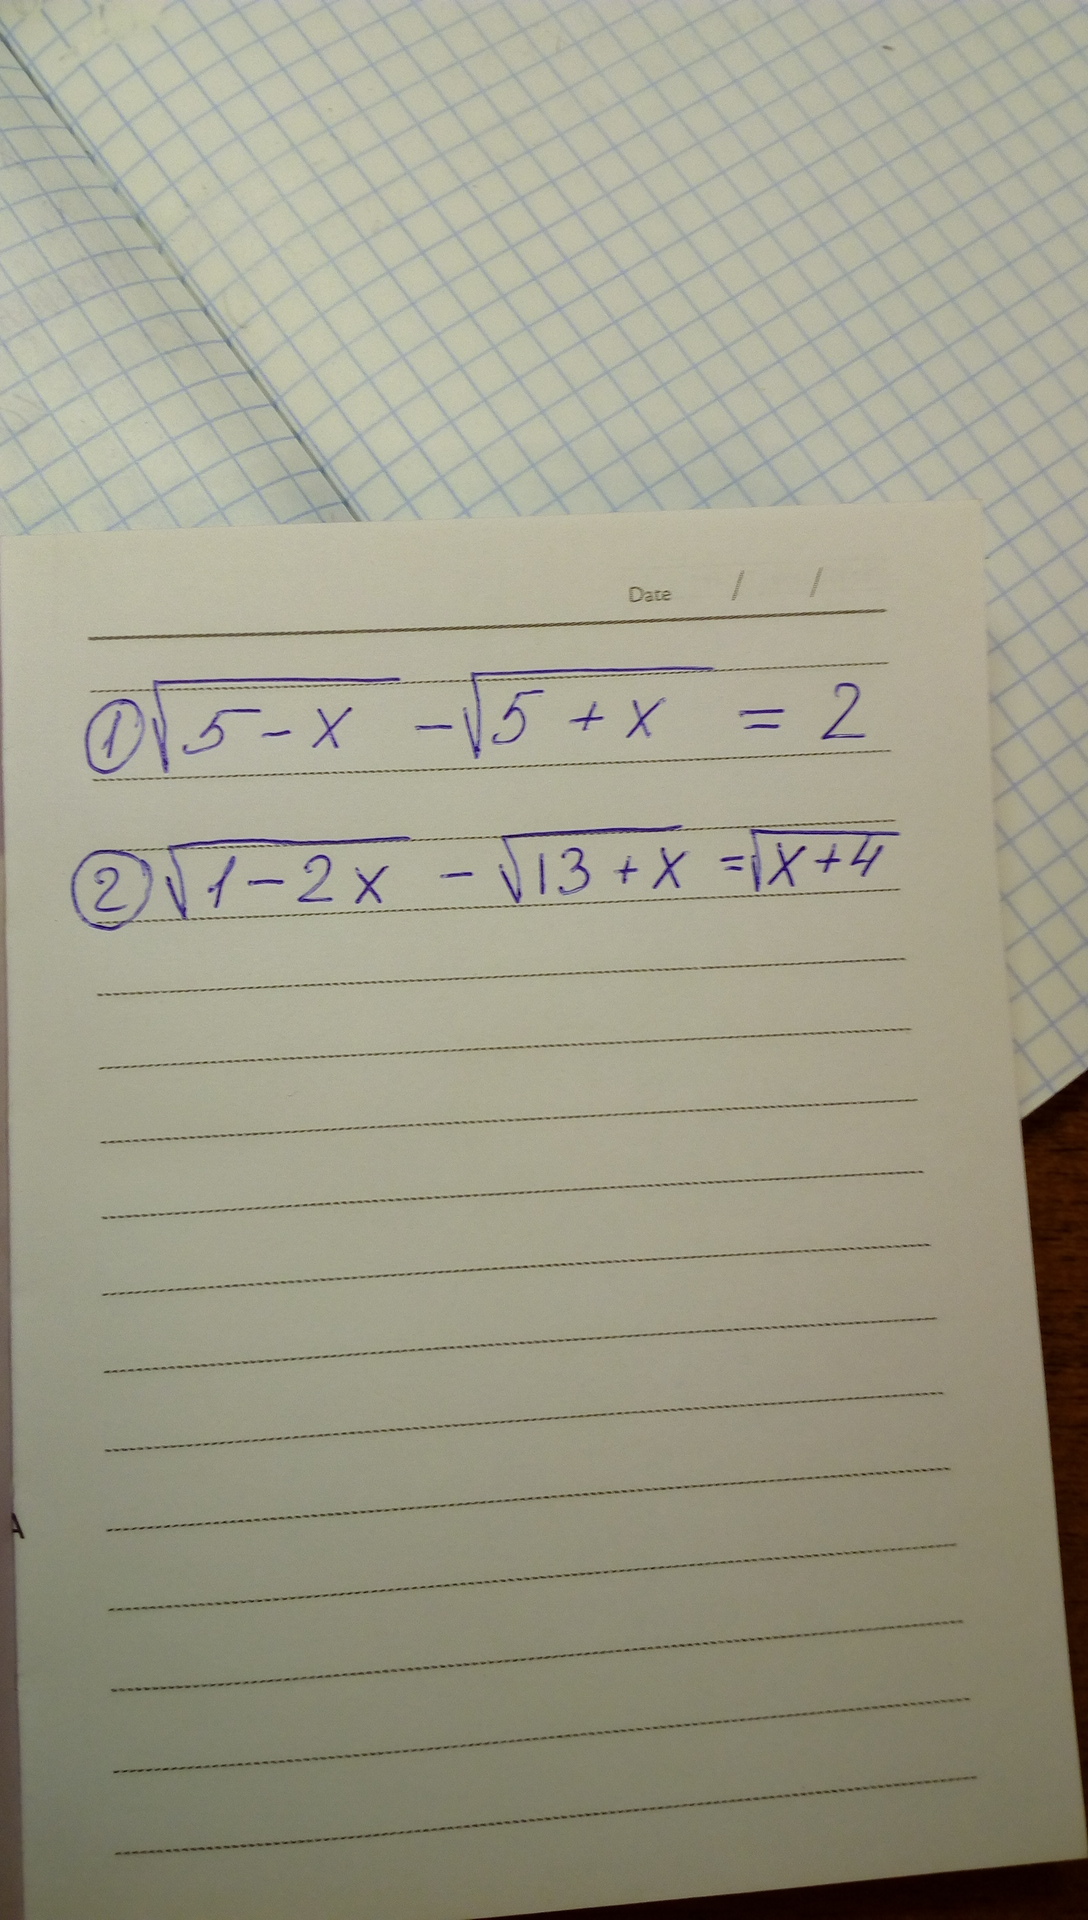 Date / /
① √5-x - √5+x = 2
② √1-2x - √13+x = √x+4
A